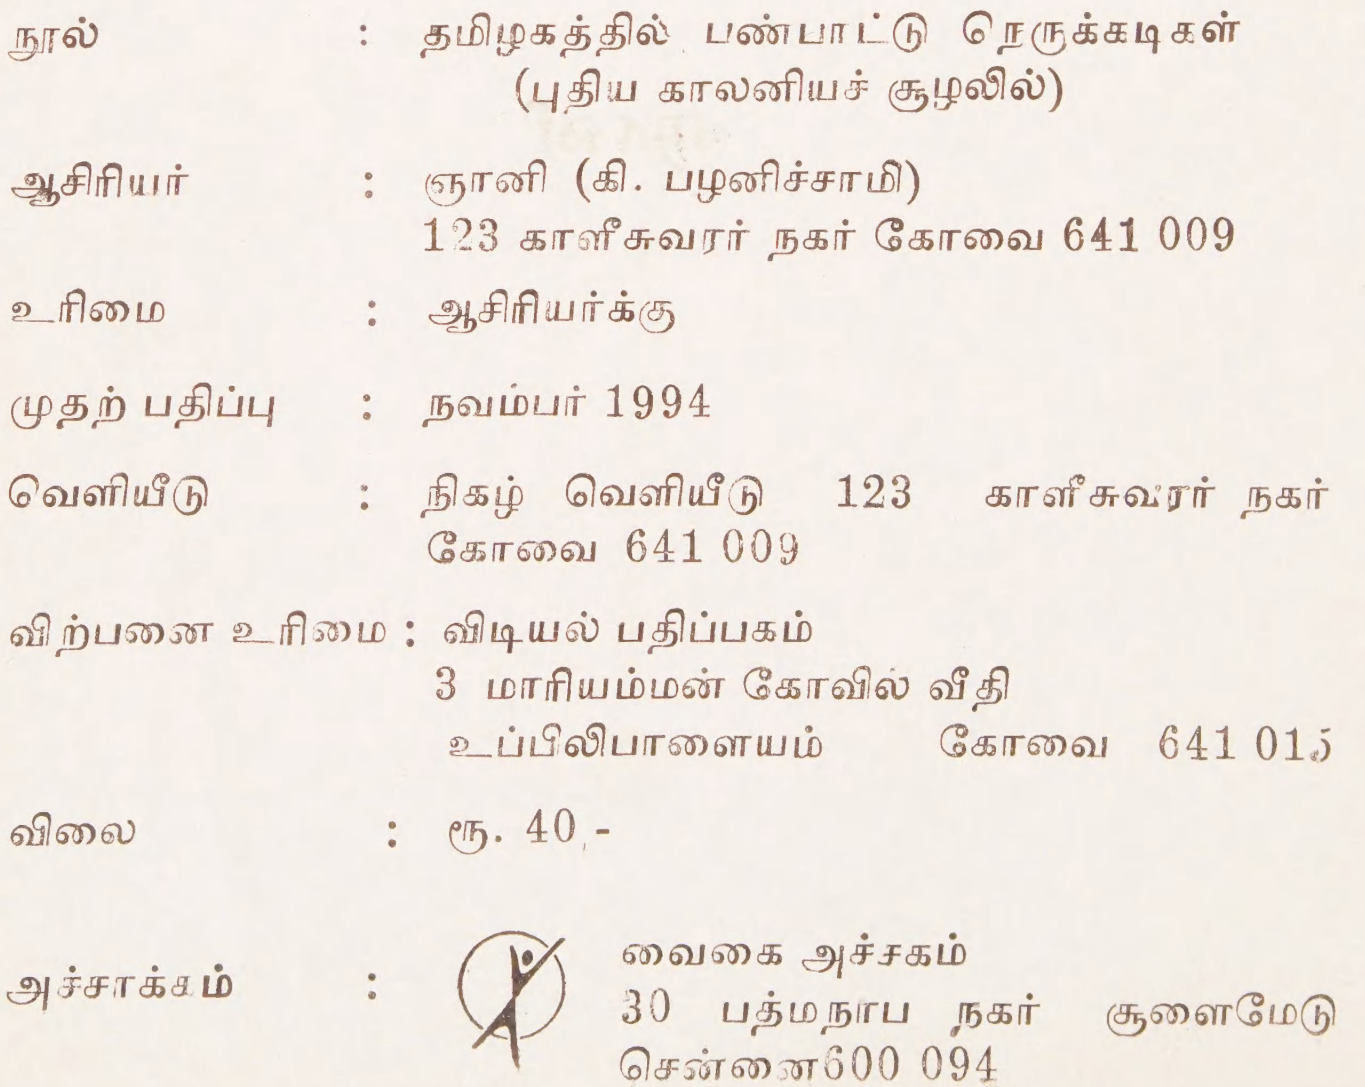 நூல் : தமிழகத்தில் பண்பாட்டு நெருக்கடிகள்
(புதிய காலனியச் சூழலில்)
ஆசிரியர் : ஞானி (கி. பழனிச்சாமி)
123 காளீசுவரர் நகர் கோவை 641 009
உரிமை : ஆசிரியர்க்கு
முதற் பதிப்பு : நவம்பர் 1994
வெளியீடு : நிகழ் வெளியீடு 123 காளீசுவரர் நகர்
கோவை 641 009
விற்பனை உரிமை : விடியல் பதிப்பகம்
3 மாரியம்மன் கோவில் வீதி
உப்பிலிபாளையம் கோவை 641 015
விலை : ரூ. 40,-
அச்சாக்கம் : வைகை அச்சகம்
30 பத்மநாப நகர் சூளைமேடு
சென்னை600 094